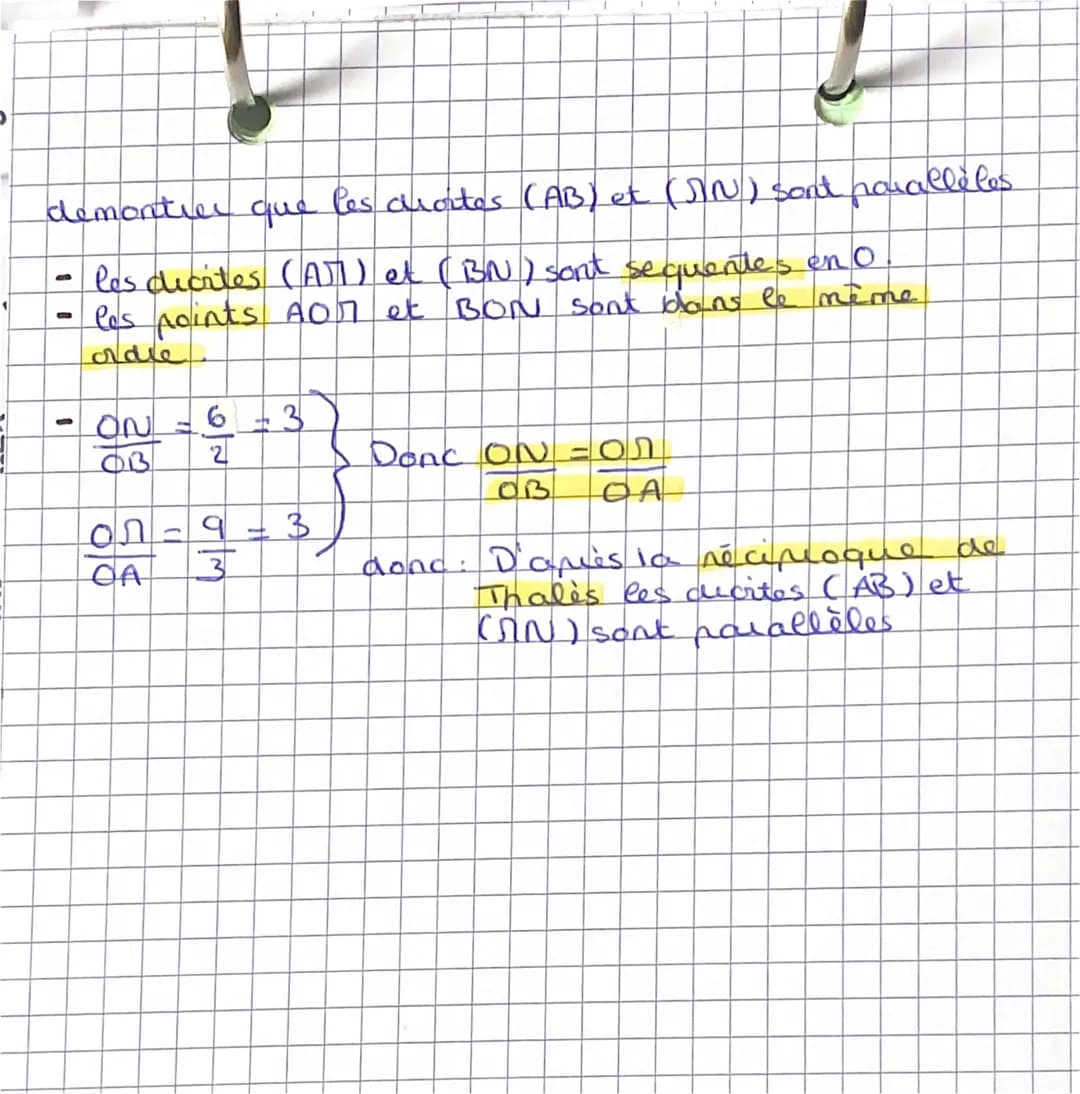 demontrer que les droites (AB) et (MN) sont parallèles
- les droites (AM) et (BN) sont sequentes en O.
- les points AOM et BON sont dans le même
ordre.
- ON/OB = 6/2 = 3
OM/OA = 9/3 = 3
Donc ON/OB = OM/OA
donc : D'après la réciproque de
Thalès les droites (AB) et
(MN) sont parallèles